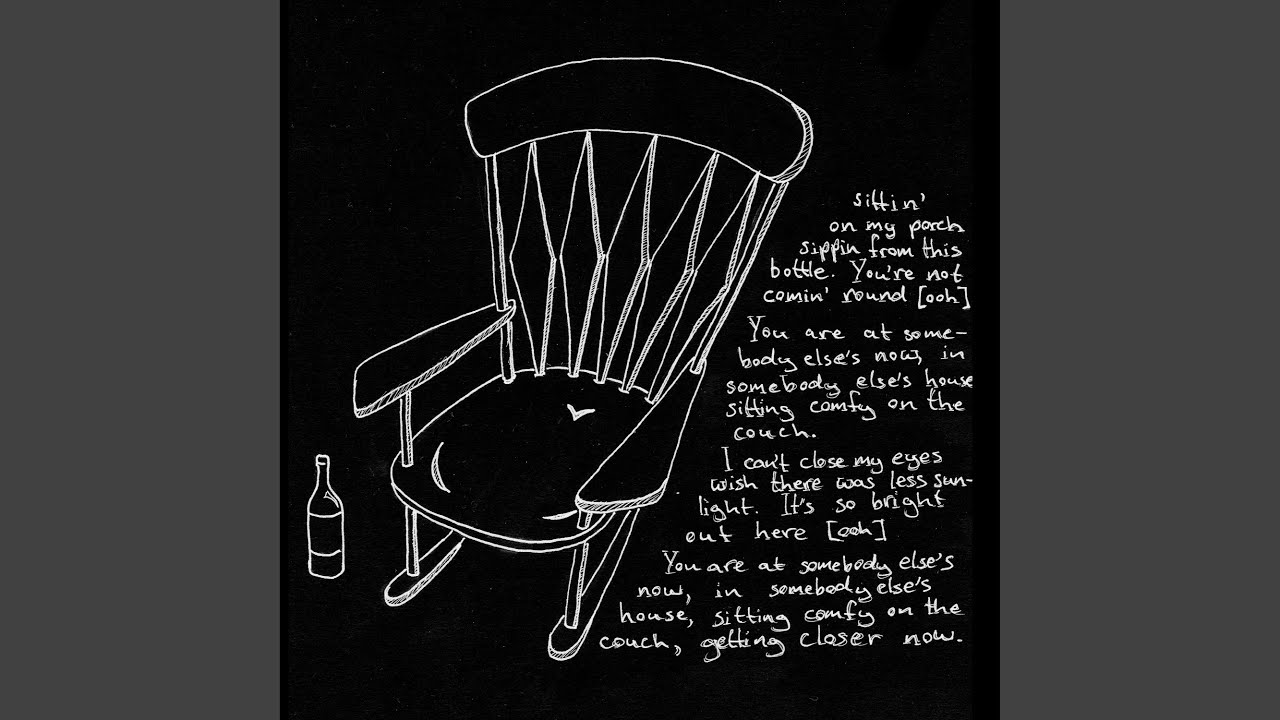 sittin'
on my porch
sippin from this
bottle. You're not
comin' round [ooh]
You are at some-
body else's now, in
somebody else's house
sitting comfy on the
couch.
I can't close my eyes
wish there was less sun-
light. It's so bright
out here [ooh]
You are at somebody else's
now, in somebody else's
house, sitting comfy on the
couch, getting closer now.